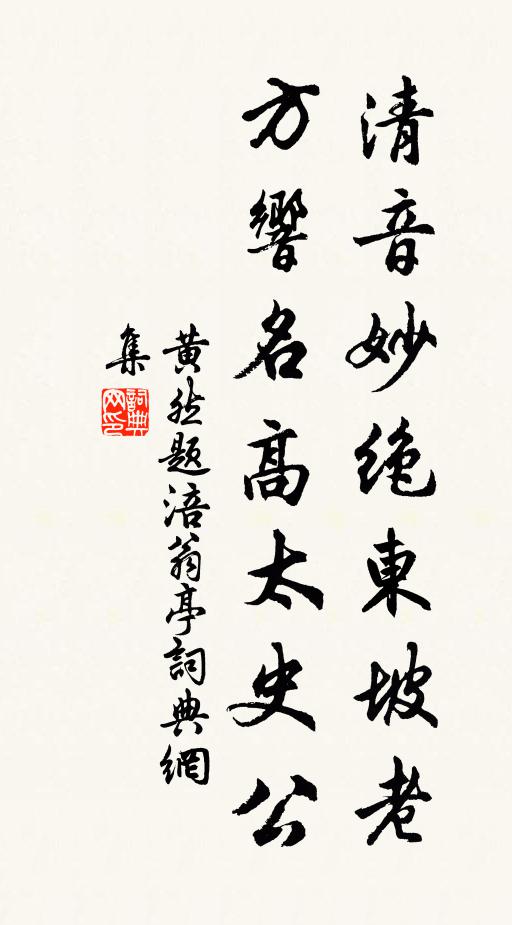 清音妙绝東坡老
方響名高太史公
黄然题涪翁亭詞典網
集
詞典網印